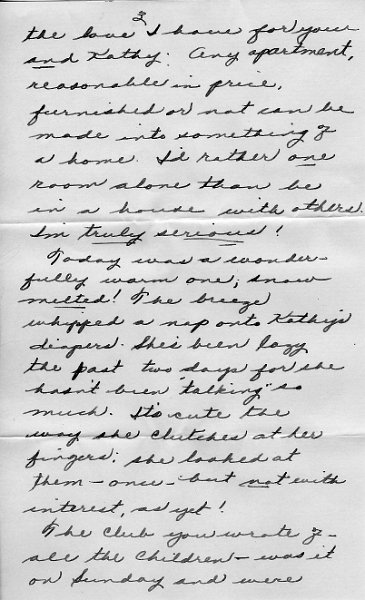 2
the love I have for your
and Kathy. Any apartment,
reasonable in price,
furnished or not can be
made into something of
a home. I'd rather one
room alone than be
in a house with others.
I'm truly serious!
Today was a wonder-
fully warm one; snow
melted! The breeze
whipped a nap onto Kathy's
diapers. She's been lazy
the past two days for she
hasn't been "talking" so
much. It's cute the
way she clutches at her
fingers; she looked at
them - once - but not with
interest, as yet!
The club you wrote of -
all the children - was it
on Sunday and were